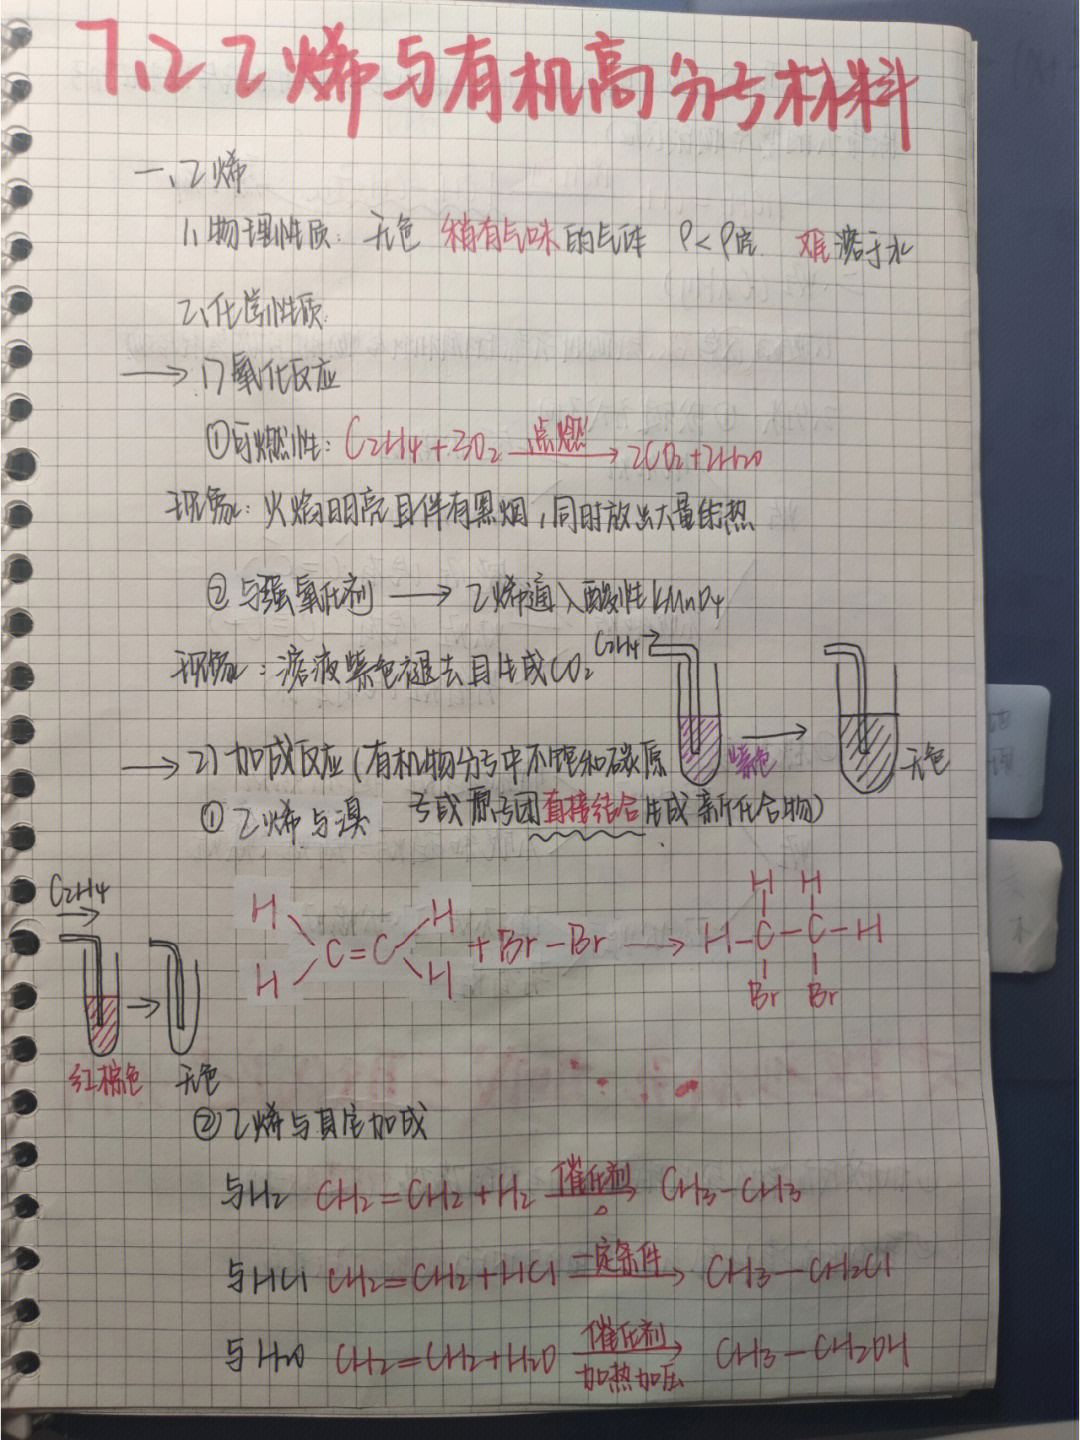 7.2 乙烯与有机高分子材料
一、乙烯
1、物理性质：无色 稍有气味的气体 ρ<ρ空 难溶于水
2、化学性质：
→ 1) 氧化反应
①可燃性：C2H4+3O2 点燃→ 2CO2+2H2O
现象：火焰明亮且伴有黑烟，同时放出大量的热
②与强氧化剂 → 乙烯通入酸性KMnO4
C2H4→
现象：溶液紫色褪去且生成CO2
紫色 → 无色
→ 2) 加成反应（有机物分子中不饱和碳原
子或原子团直接结合生成新化合物）
①乙烯与溴
C2H4
→
H H H H
C=C +Br-Br → H-C-C-H
H H Br Br
红棕色 → 无色
②乙烯与其它加成
与H2 CH2=CH2+H2 催化剂→△ CH3-CH3
与HCl CH2=CH2+HCl 一定条件→ CH3-CH2Cl
与H2O CH2=CH2+H2O 催化剂→加热加压 CH3-CH2OH